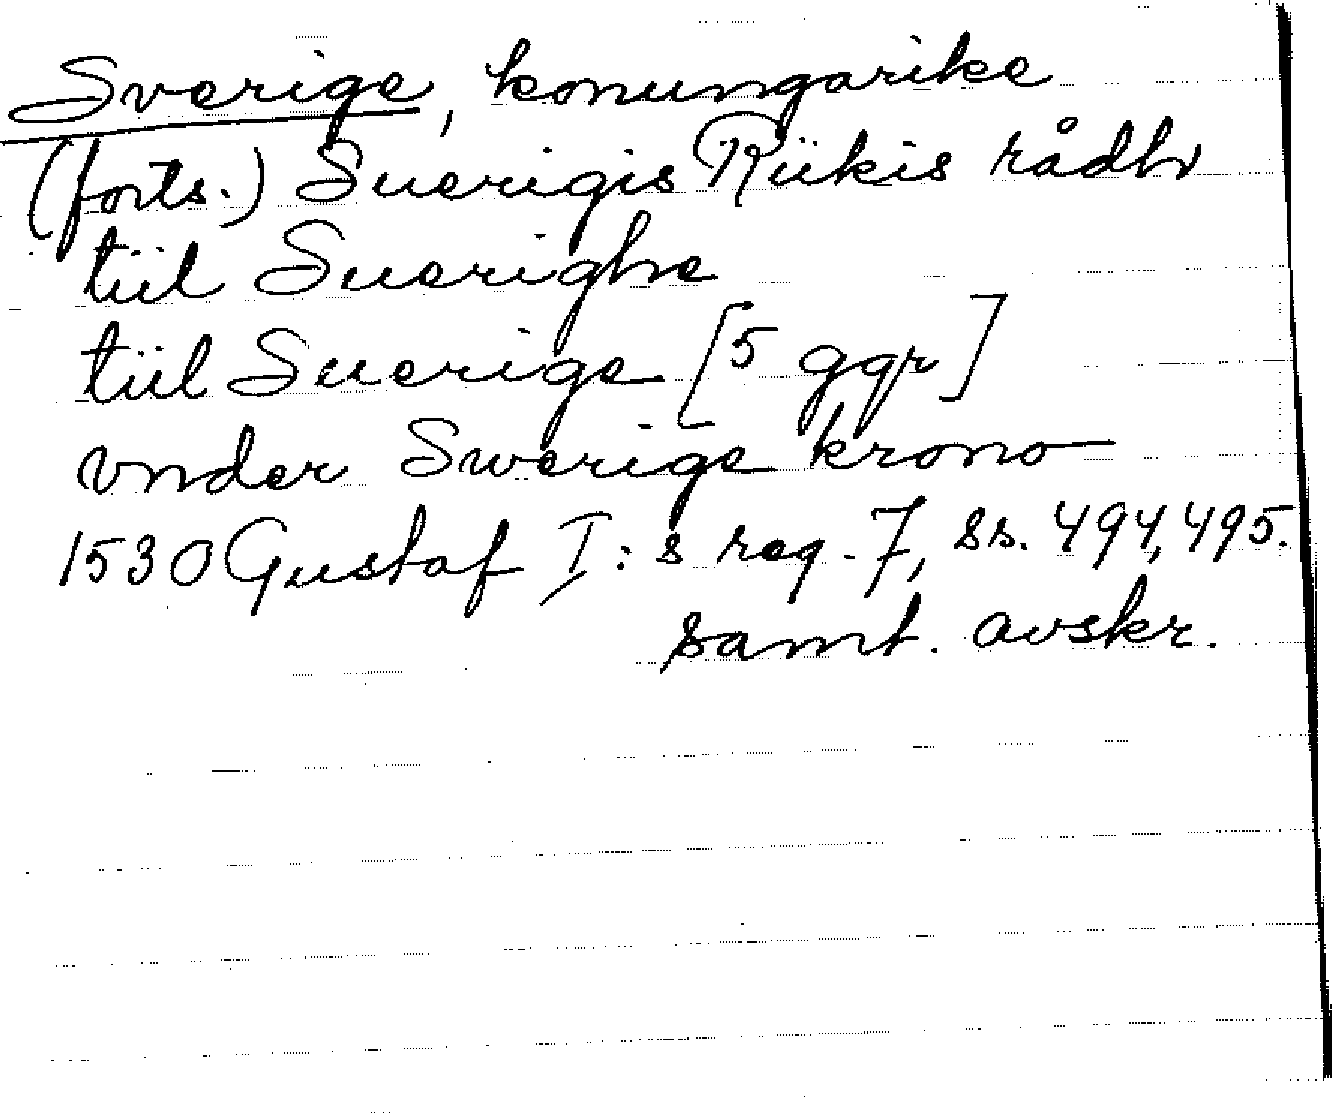 Sverige, konungarike
(forts.) Suerigis Riikis rådh
tiil Suerighe
tiil Suerige [5 ggr]
vnder Swerige krono
1530 Gustaf I:s reg. 7, ss. 494, 495.
samt. avskr.